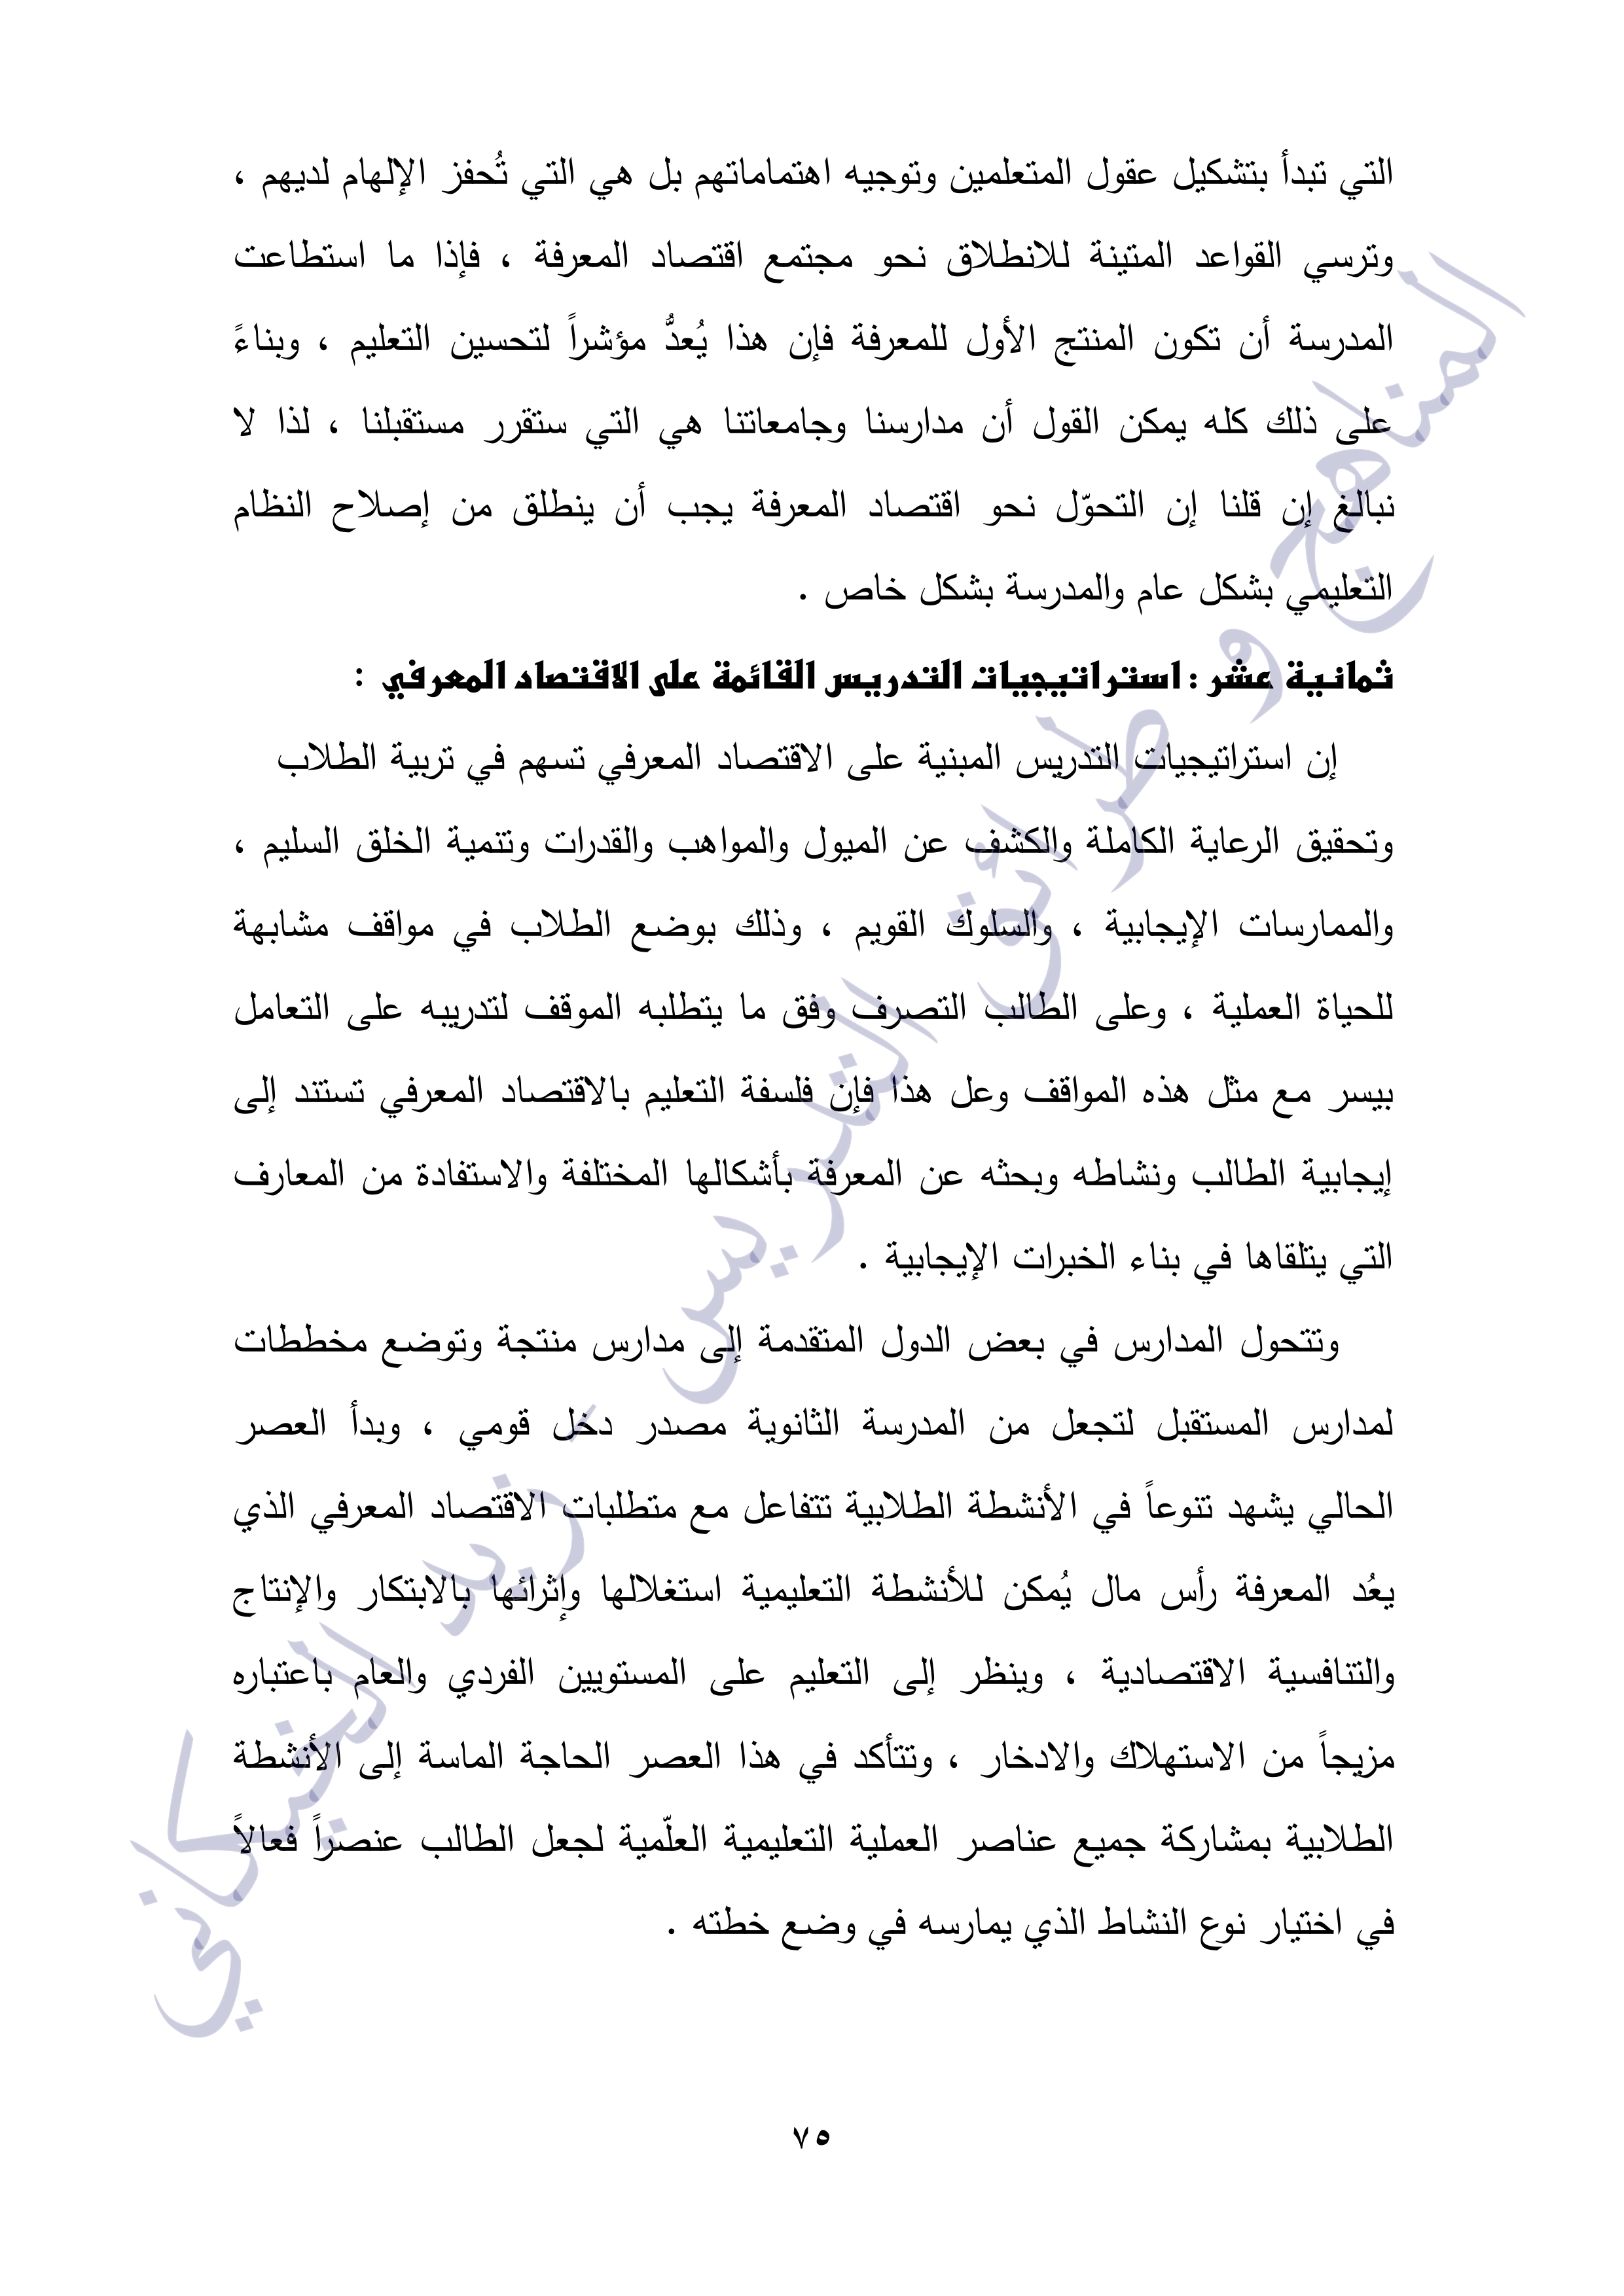 التي تبدأ بتشكيل عقول المتعلمين وتوجيه اهتماماتهم بل هي التي تُحفز الإلهام لديهم ،
وترسي القواعد المتينة للانطلاق نحو مجتمع اقتصاد المعرفة ، فإذا ما استطاعت
المدرسة أن تكون المنتج الأول للمعرفة فإن هذا يُعدُّ مؤشراً لتحسين التعليم ، وبناءً
على ذلك كله يمكن القول أن مدارسنا وجامعاتنا هي التي ستقرر مستقبلنا ، لذا لا
نبالغ إن قلنا إن التحوّل نحو اقتصاد المعرفة يجب أن ينطلق من إصلاح النظام
التعليمي بشكل عام والمدرسة بشكل خاص .
ثمانية عشر : استراتيجيات التدريس القائمة على الاقتصاد المعرفي :
إن استراتيجيات التدريس المبنية على الاقتصاد المعرفي تسهم في تربية الطلاب
وتحقيق الرعاية الكاملة والكشف عن الميول والمواهب والقدرات وتنمية الخلق السليم ،
والممارسات الإيجابية ، والسلوك القويم ، وذلك بوضع الطلاب في مواقف مشابهة
للحياة العملية ، وعلى الطالب التصرف وفق ما يتطلبه الموقف لتدريبه على التعامل
بيسر مع مثل هذه المواقف وعل هذا فإن فلسفة التعليم بالاقتصاد المعرفي تستند إلى
إيجابية الطالب ونشاطه وبحثه عن المعرفة بأشكالها المختلفة والاستفادة من المعارف
التي يتلقاها في بناء الخبرات الإيجابية .
وتتحول المدارس في بعض الدول المتقدمة إلى مدارس منتجة وتوضع مخططات
لمدارس المستقبل لتجعل من المدرسة الثانوية مصدر دخل قومي ، وبدأ العصر
الحالي يشهد تنوعاً في الأنشطة الطلابية تتفاعل مع متطلبات الاقتصاد المعرفي الذي
يعُد المعرفة رأس مال يُمكن للأنشطة التعليمية استغلالها وإثرائها بالابتكار والإنتاج
والتنافسية الاقتصادية ، وينظر إلى التعليم على المستويين الفردي والعام باعتباره
مزيجاً من الاستهلاك والادخار ، وتتأكد في هذا العصر الحاجة الماسة إلى الأنشطة
الطلابية بمشاركة جميع عناصر العملية التعليمية العلّمية لجعل الطالب عنصراً فعالاً
في اختيار نوع النشاط الذي يمارسه في وضع خطته .
٧٥
المناهج و طرائق التدريس - زيد الخيكاني